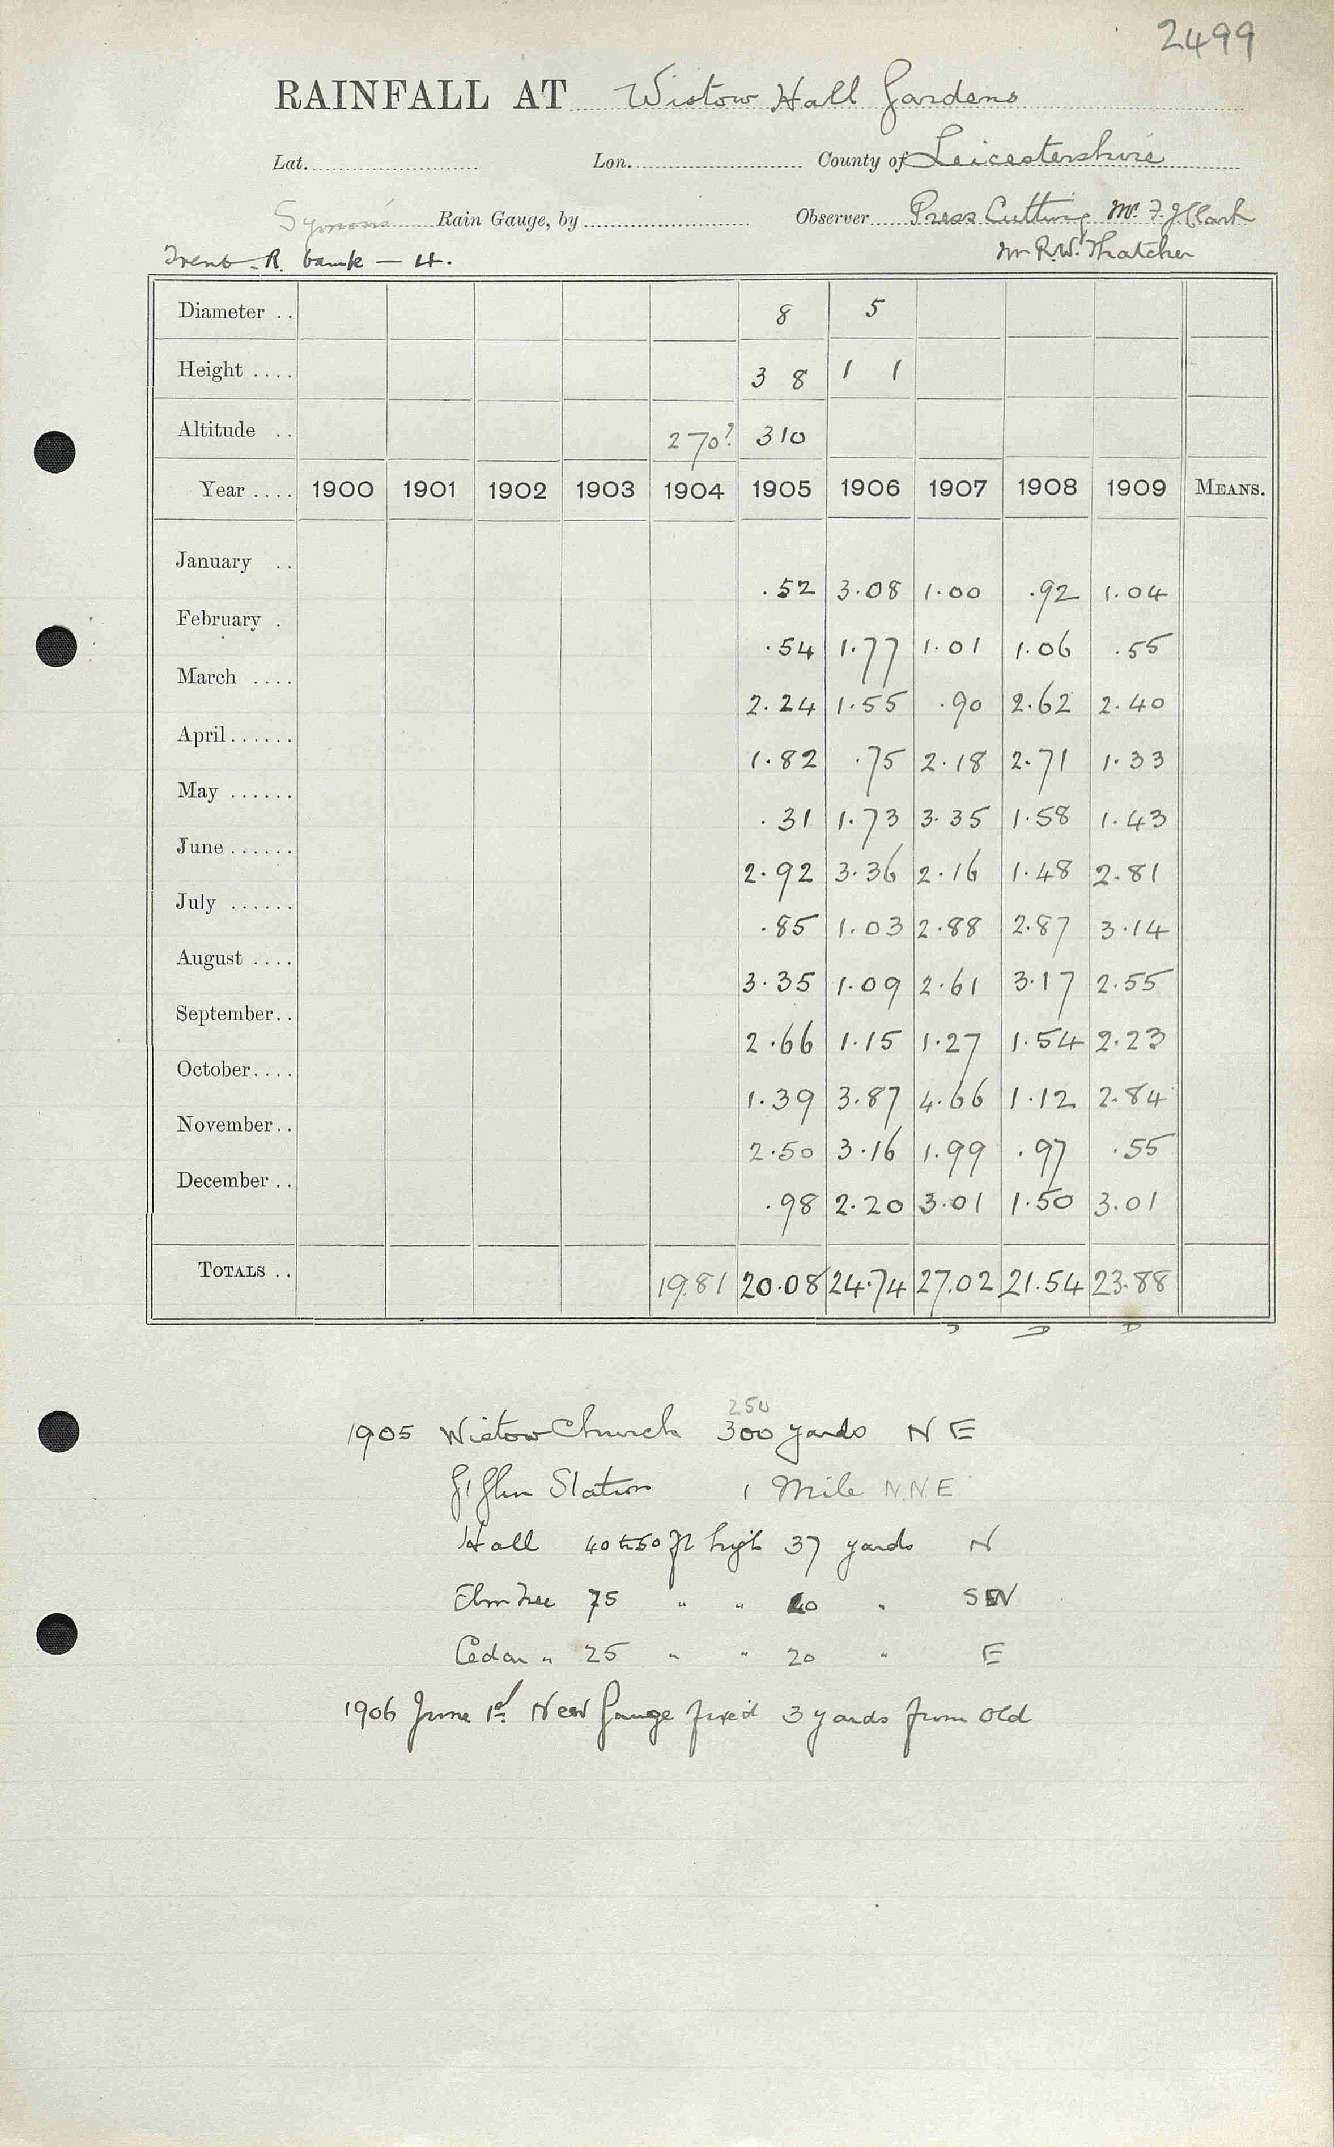 2499
RAINFALL AT Wistow Hall Gardens
Lat. Lon. County of Leicestershire
Symons Rain Gauge, by Observer Press Cutting Mr. F. J. Clark
Trent. R. bank — 4. Mr R.W. Thatcher
Diameter .. 8 5
Height .... 3 8 1 1
Altitude .. 270? 310
Year .... 1900 1901 1902 1903 1904 1905 1906 1907 1908 1909 MEANS.
January .. .52 3.08 1.00 .92 1.04
February . .54 1.77 1.01 1.06 .55
March .... 2.24 1.55 .90 2.62 2.40
April...... 1.82 .75 2.18 2.71 1.33
May ...... .31 1.73 3.35 1.58 1.43
June ...... 2.92 3.36 2.16 1.48 2.81
July ...... .85 1.03 2.88 2.87 3.14
August .... 3.35 1.09 2.61 3.17 2.55
September.. 2.66 1.15 1.27 1.54 2.23
October.... 1.39 3.87 4.66 1.12 2.84
November.. 2.50 3.16 1.99 .97 .55
December .. .98 2.20 3.01 1.50 3.01
TOTALS .. 19.81 20.08 24.74 27.02 21.54 23.88
D D D
250
1905 Wistow Church 300 yards N E
Gt Glen Station 1 Mile N.N.E
Hall 40 to 50 ft high 37 yards N
Elm Tree 75 " " 20 " SW
Cedar " 25 " " 20 " E
1906 June 1st New Gauge fixed 3 yards from Old